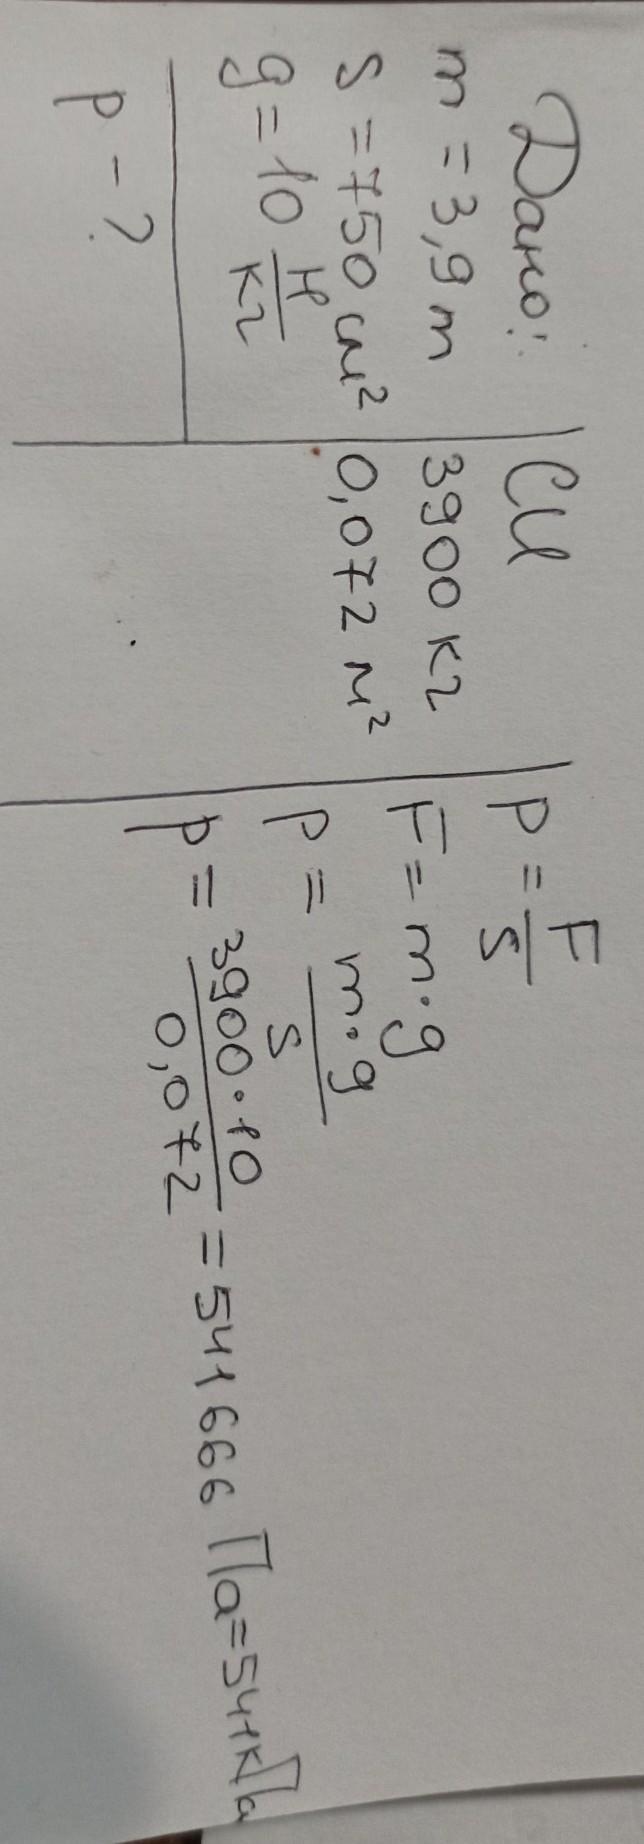 Дано:
m = 3,9 т
S = 750 см²
g = 10 Н/кг
p - ?
СИ
3900 кг
0,072 м²
P = F/S
F = m·g
P = m·g/S
p = 3900·10/0,072 = 541666 Па = 541кПа